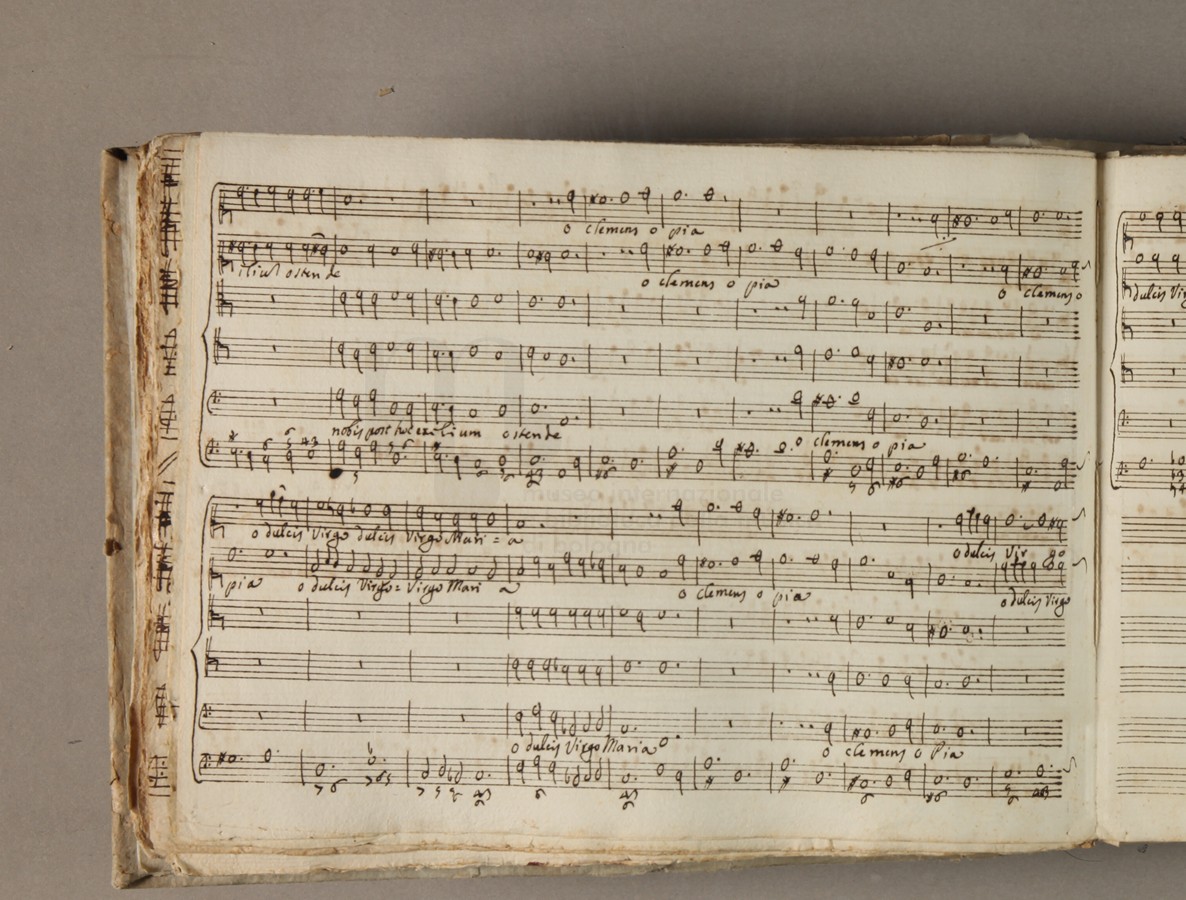 o clemens o pia
exilium ostende
o clemens o pia
o clemens o
dulcis Virg
nobis post hoc exilium ostende
o clemens o pia
museo internazionale
di bologna
o dulcis Virgo dulcis Virgo Mari = a
o dulcis Virgo
pia o dulcis Virgo = Virgo Mari a
o clemens o pia
o dulcis Virgo
o dulcis Virgo Maria
o clemens o Pia